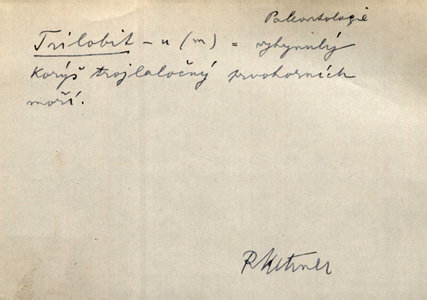 Paleontologie
Trilobit - u (m) = vyhynulý
korýš trojlaločný prvohorních
moří.
R Kettner